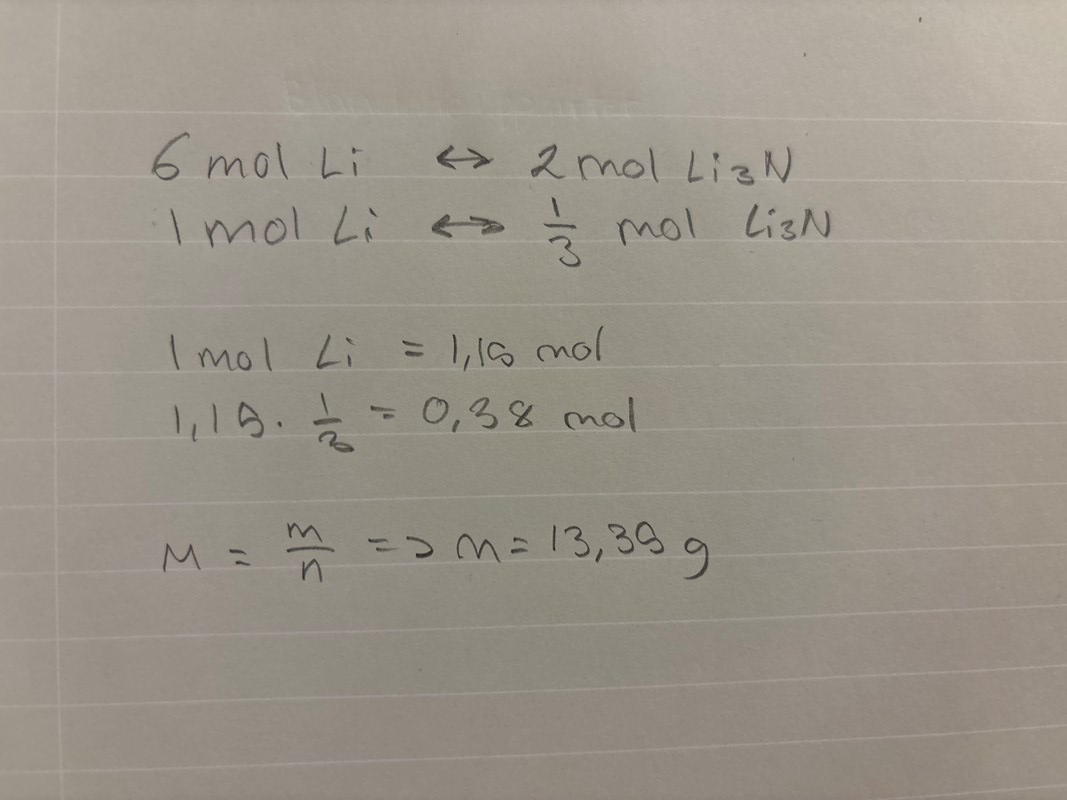 6 mol Li ↔ 2 mol Li₃N
1 mol Li ↔ 1/3 mol Li₃N
1 mol Li = 1,15 mol
1,15 · 1/3 = 0,38 mol
M = m/n => m = 13,39 g